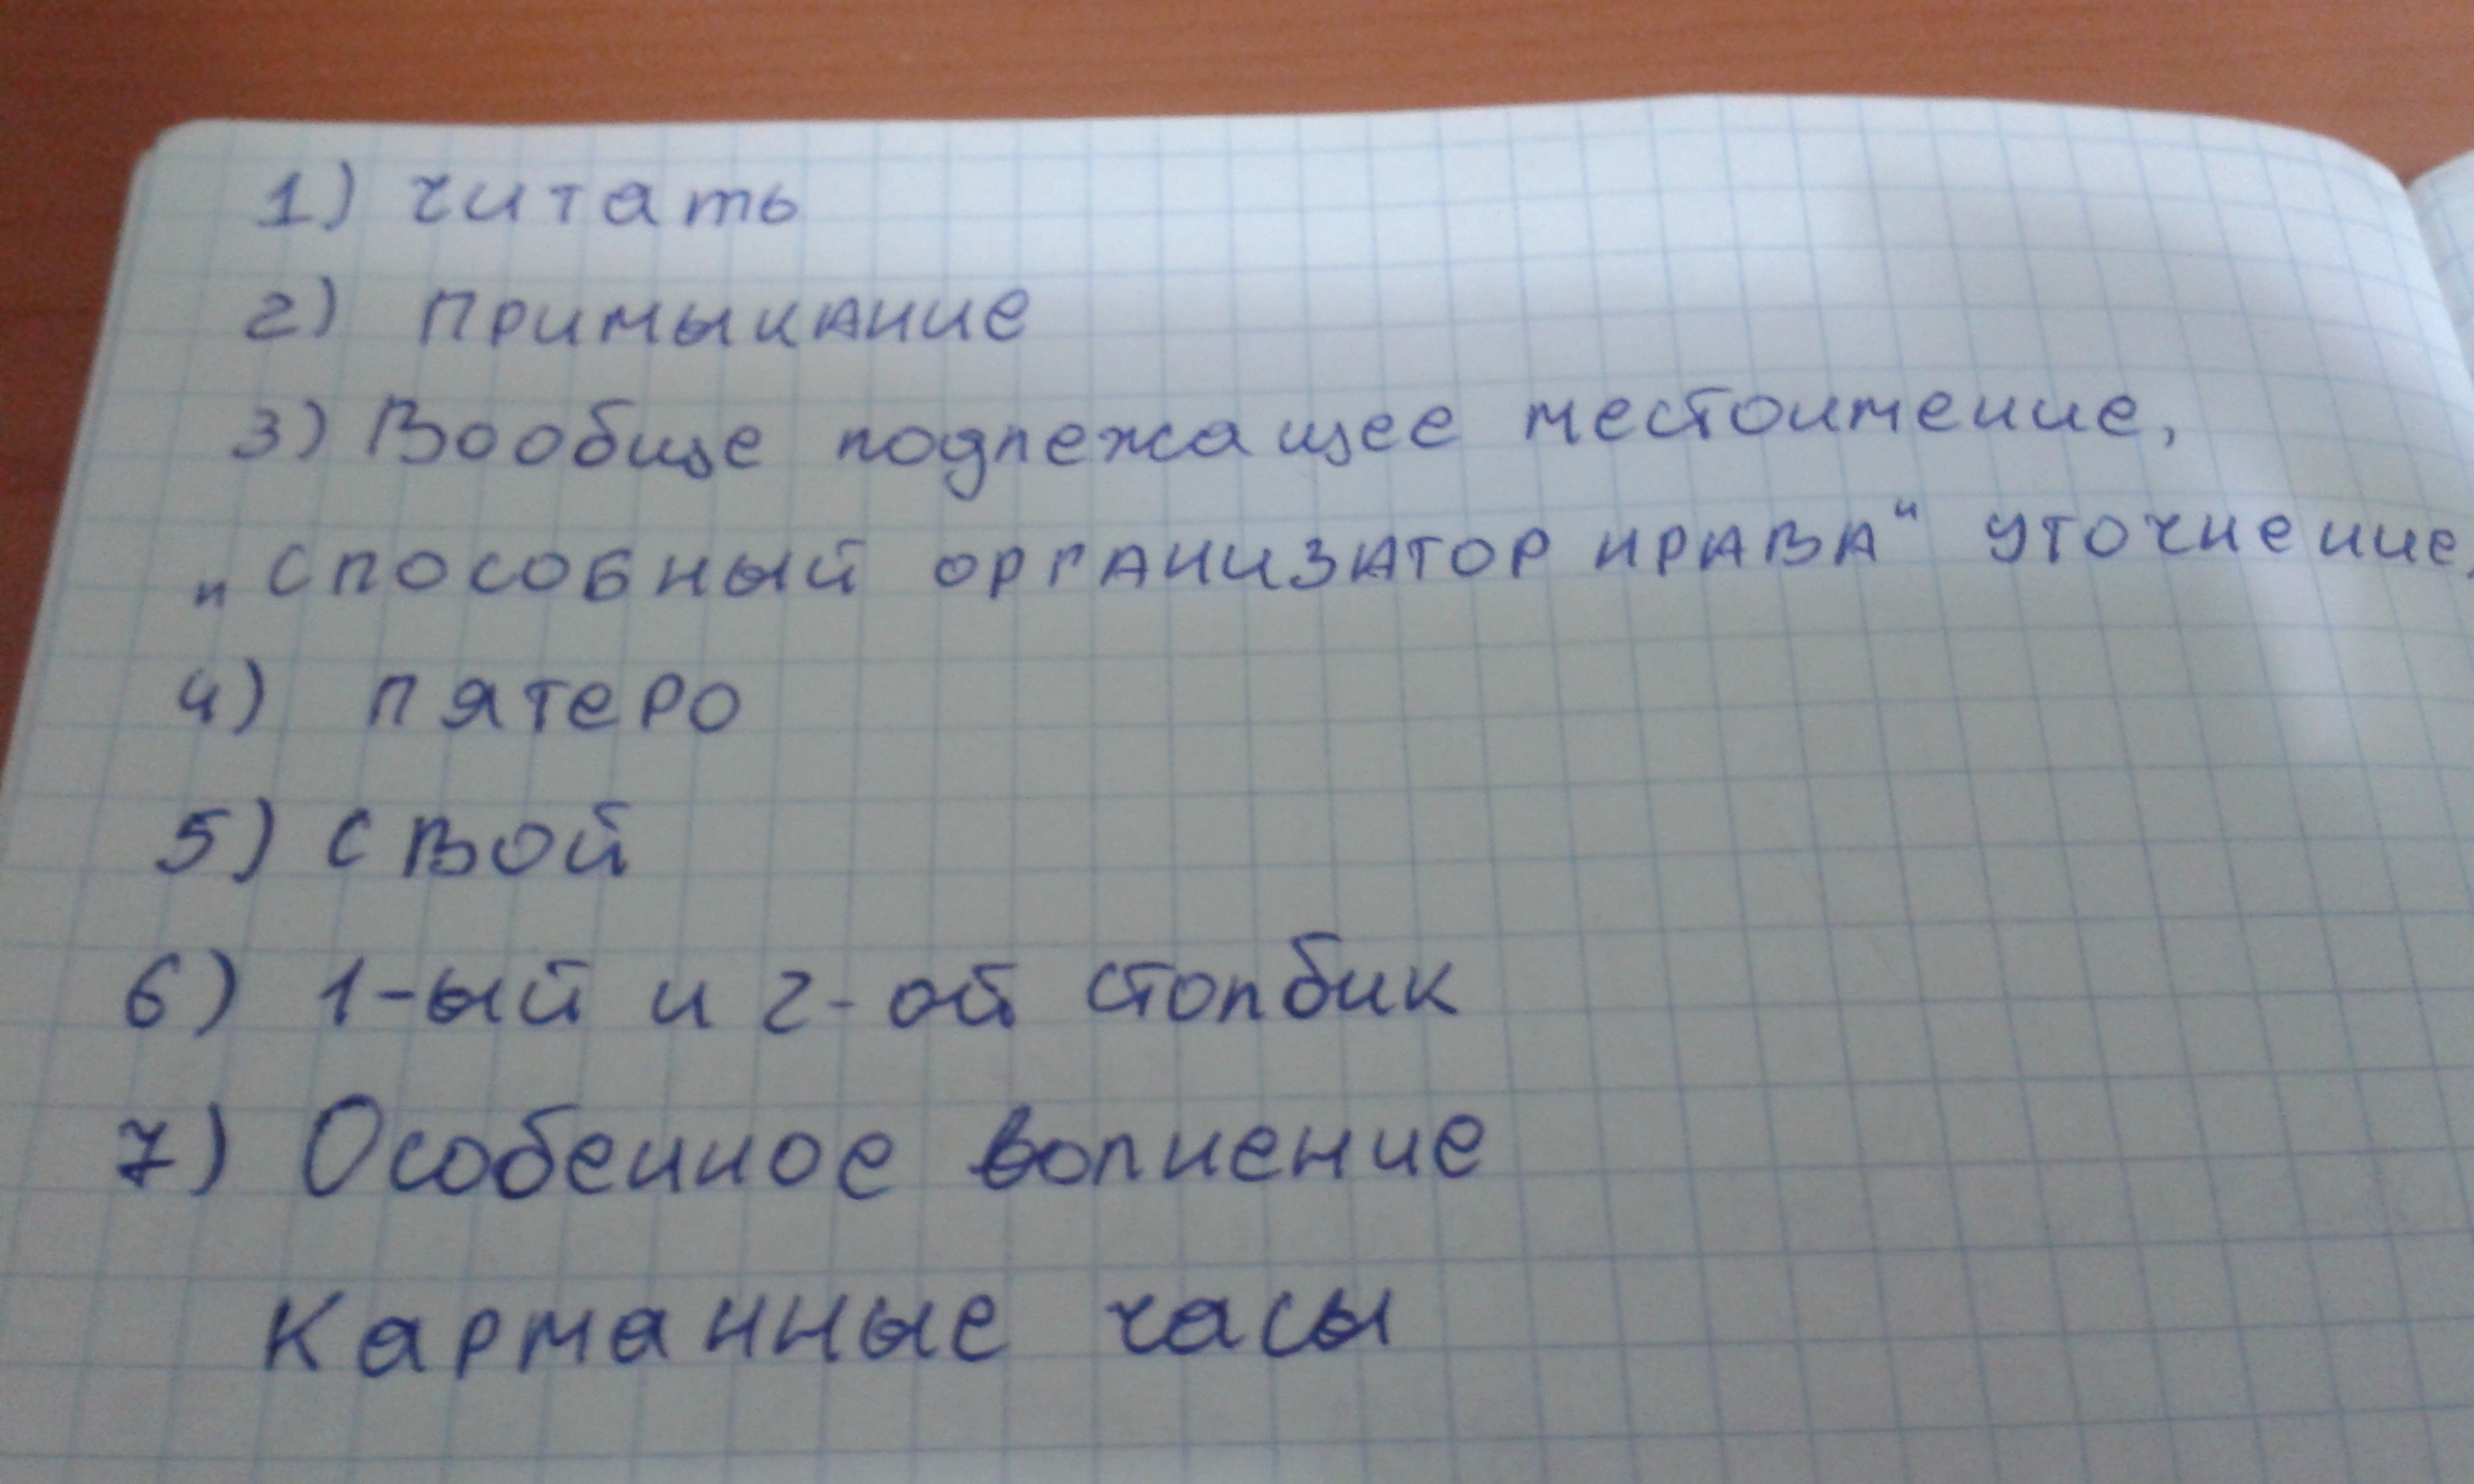 1) читать
2) примыкание
3) Вообще подлежащее местоимение,
„способный организатор нрава“ уточнение,
4) пятеро
5) свой
6) 1-ый и 2-ой столбик
7) Особенное волнение
Карманные часы